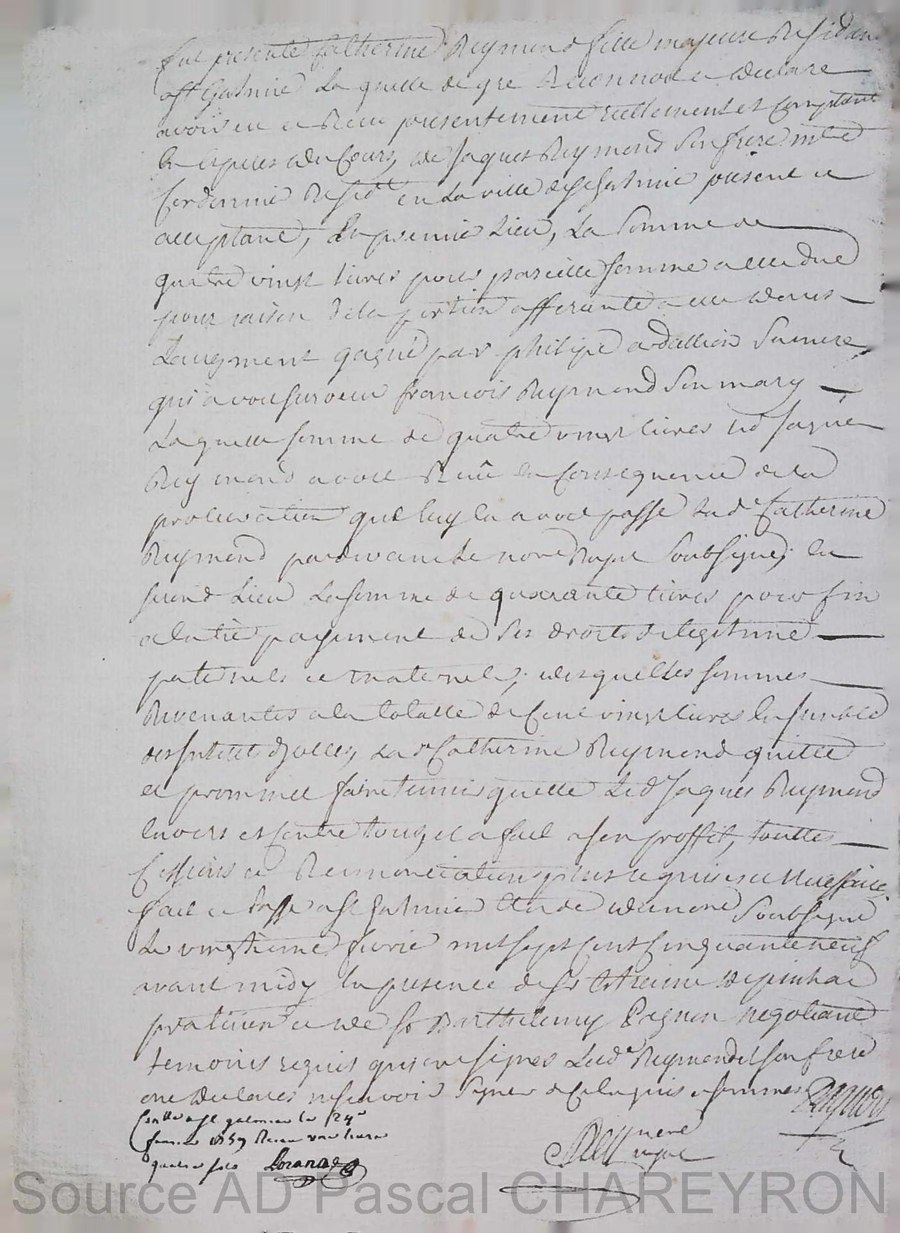 fut presente Catherine Reymond fille majeure Residan
a St Galmie La quelle de gre Reconnoit et declare
avoir eu et Receu presentement reellement et comptant
en especes de Cours, de Jaques Reymond son frere mtre
Cordonnie Residt en La ville de St Galmie present et
acceptant, En premie Lieu, La Somme de
quatre vingt livres pour pareille somme a elle due
pour raison de la portion afferante a elle
Laugment gagné par philipe sa mere
qui avoit survecu francois Reymond Son mary
Laquelle somme de quatre vingt livres led Jaques
Reymond avoit Receu en Consequence de la
procuration que luy en avoit passé lade Catherine
Reymond pardevant le nore Royal Soubsigné; en
second Lieu La somme de quarante livres pour fin
de payement de Ses droits de legitime
paternels et maternels; desquelles sommes
Revenantes a la totalle de Cent vingt livres Ensemble
des interets La de Catherine Reymond quitte
et promet faire tenir quitte Led Jaques Reymond
Envers et Contre tous, et a fait a son proffit, touttes
Cessions et Renonciations plus requises et necessaires
fait et Passé a St Galmie Etude de nore Soubsigné
Le vingtieme fevrie mil sept cent Cinquante neuf
avant midy En presence de Sr Etienne
praticien et de Sr Barthelemy Pagnon negotiant
temoins requis qui ont signés Lade Reymond et son frere
ont declares ne scavoir Signer de Ce Enquis et sommes
Conlle a St galmier le 24e
fevrier 1759 Receu une livre
quatre sols
nore
Royal
Source AD Pascal CHAREYRON